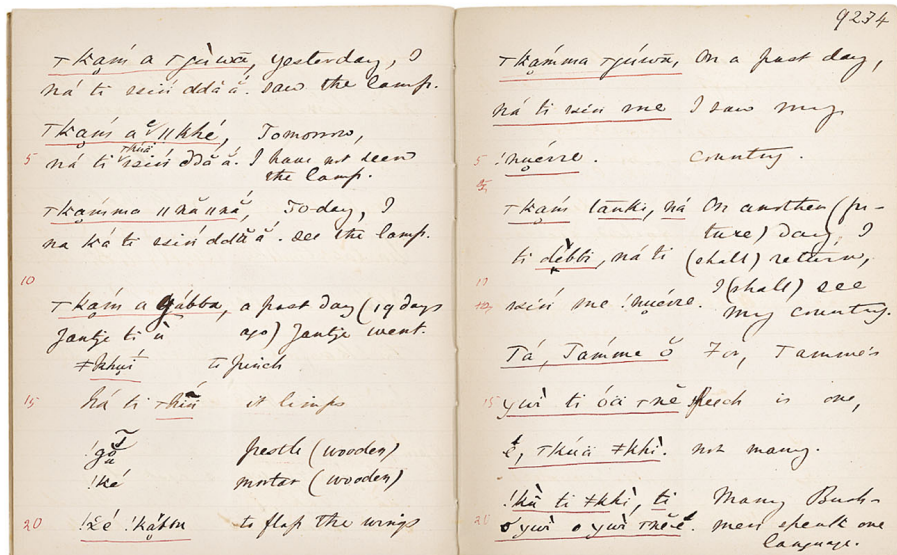 9234
Tkam a Tguwa, yesterday, I
ná ti ssin ddă ă. saw the lamp.
Tkam a ǁkhé, Tomorrow,
5 ná ti ssin ddă ă. I have not seen
the lamp.
Tkamma ǁnăǁnă, To-day, I
na ká ti ssin ddă ă. see the lamp.
10
Tkam a gábba, a past day (19 days
Jantje ti ù ago) Jantje went.
ǂkhuí to pinch
15 há ti it limps
pestle (wooden)
!ké mortar (wooden)
20 to flap the wings
Tkamma Tgúwa, On a past day,
ná ti ssin me I saw my
5 !nuérre. country.
Tkam tanki, ná On another (fu-
ture) day, I
ti dèbbi, ná ti (shall) return,
10 ssin me !nuérre. I (shall) see
my country.
Tá, Tamme ŏ For, Tamme's
15 ti óä Tnĕ speech is one,
é, Tkúä ǂkhì. not many.
!kŭ ti ǂkhì, ti Many Bush-
20 men speak one
language.